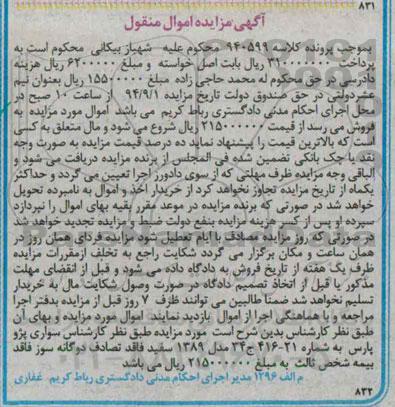 ۸۳۱
آگهی مزایده اموال منقول
بموجب پرونده کلاسه ۹۴۰۵۹۹ محکوم علیه شهباز بیکانی محکوم است به
پرداخت ۳۱۰۰۰۰۰۰۰ ریال بابت اصل خواسته و مبلغ ۶۲۰۰۰۰۰ ریال هزینه
دادرسی در حق محکوم له محمد حاجی زاده مبلغ ۱۵۵۰۰۰۰۰ ریال بعنوان نیم
عشر دولتی در حق صندوق دولت تاریخ مزایده ۹۴/۹/۱ از ساعت ۱۰ صبح در
محل اجرای احکام مدنی دادگستری رباط کریم می باشد اموال مورد مزایده به
فروش می رسد از قیمت ۲۱۵۰۰۰۰۰۰ ریال شروع می شود و مال متعلق به کسی
است که بالاترین قیمت را پیشنهاد نماید ده درصد قیمت مزایده به صورت وجه
نقد یا چک بانکی تضمین شده فی المجلس از برنده مزایده دریافت می شود و
الباقی وجه مزایده ظرف مهلتی که از سوی دادورز اجرا تعیین می گردد و حداکثر
یکماه از تاریخ مزایده تجاوز نخواهد کرد از خریدار اخذ و اموال به نامبرده تحویل
خواهد شد در صورتی که برنده مزایده در موعد مقرر بقیه بهای اموال را نپردازد
سپرده او پس از کسر هزینه مزایده بنفع دولت ضبط و مزایده تجدید خواهد شد
در صورتی که روز مزایده مصادف با ایام تعطیل شود مزایده فردای همان روز در
همان ساعت و مکان برگزار می گردد شکایت راجع به تخلف از مقررات مزایده
ظرف یک هفته از تاریخ فروش به دادگاه داده می شود و قبل از انقضای مهلت
مذکور یا قبل از اتخاذ تصمیم دادگاه در صورت وصول شکایت مال به خریدار
تسلیم نخواهد شد ضمنا طالبین می توانند ظرف ۷ روز قبل از مزایده بدفتر اجرا
مراجعه و با هماهنگی اجرا از اموال بازدید نمایند اموال مورد مزایده و بهای آن
طبق نظر کارشناس بدین شرح است مورد مزایده طبق نظر کارشناس سواری پژو
پارس به شماره ۲۱-۴۱۶ ج۳۴ مدل ۱۳۸۹ سفید فاقد تصادف دوگانه سوز فاقد
بیمه شخص ثالث به مبلغ ۲۱۵۰۰۰۰۰۰ ریال می باشد
م الف ۱۲۹۶ مدیر اجرای احکام مدنی دادگستری رباط کریم - غفاری
۸۳۲